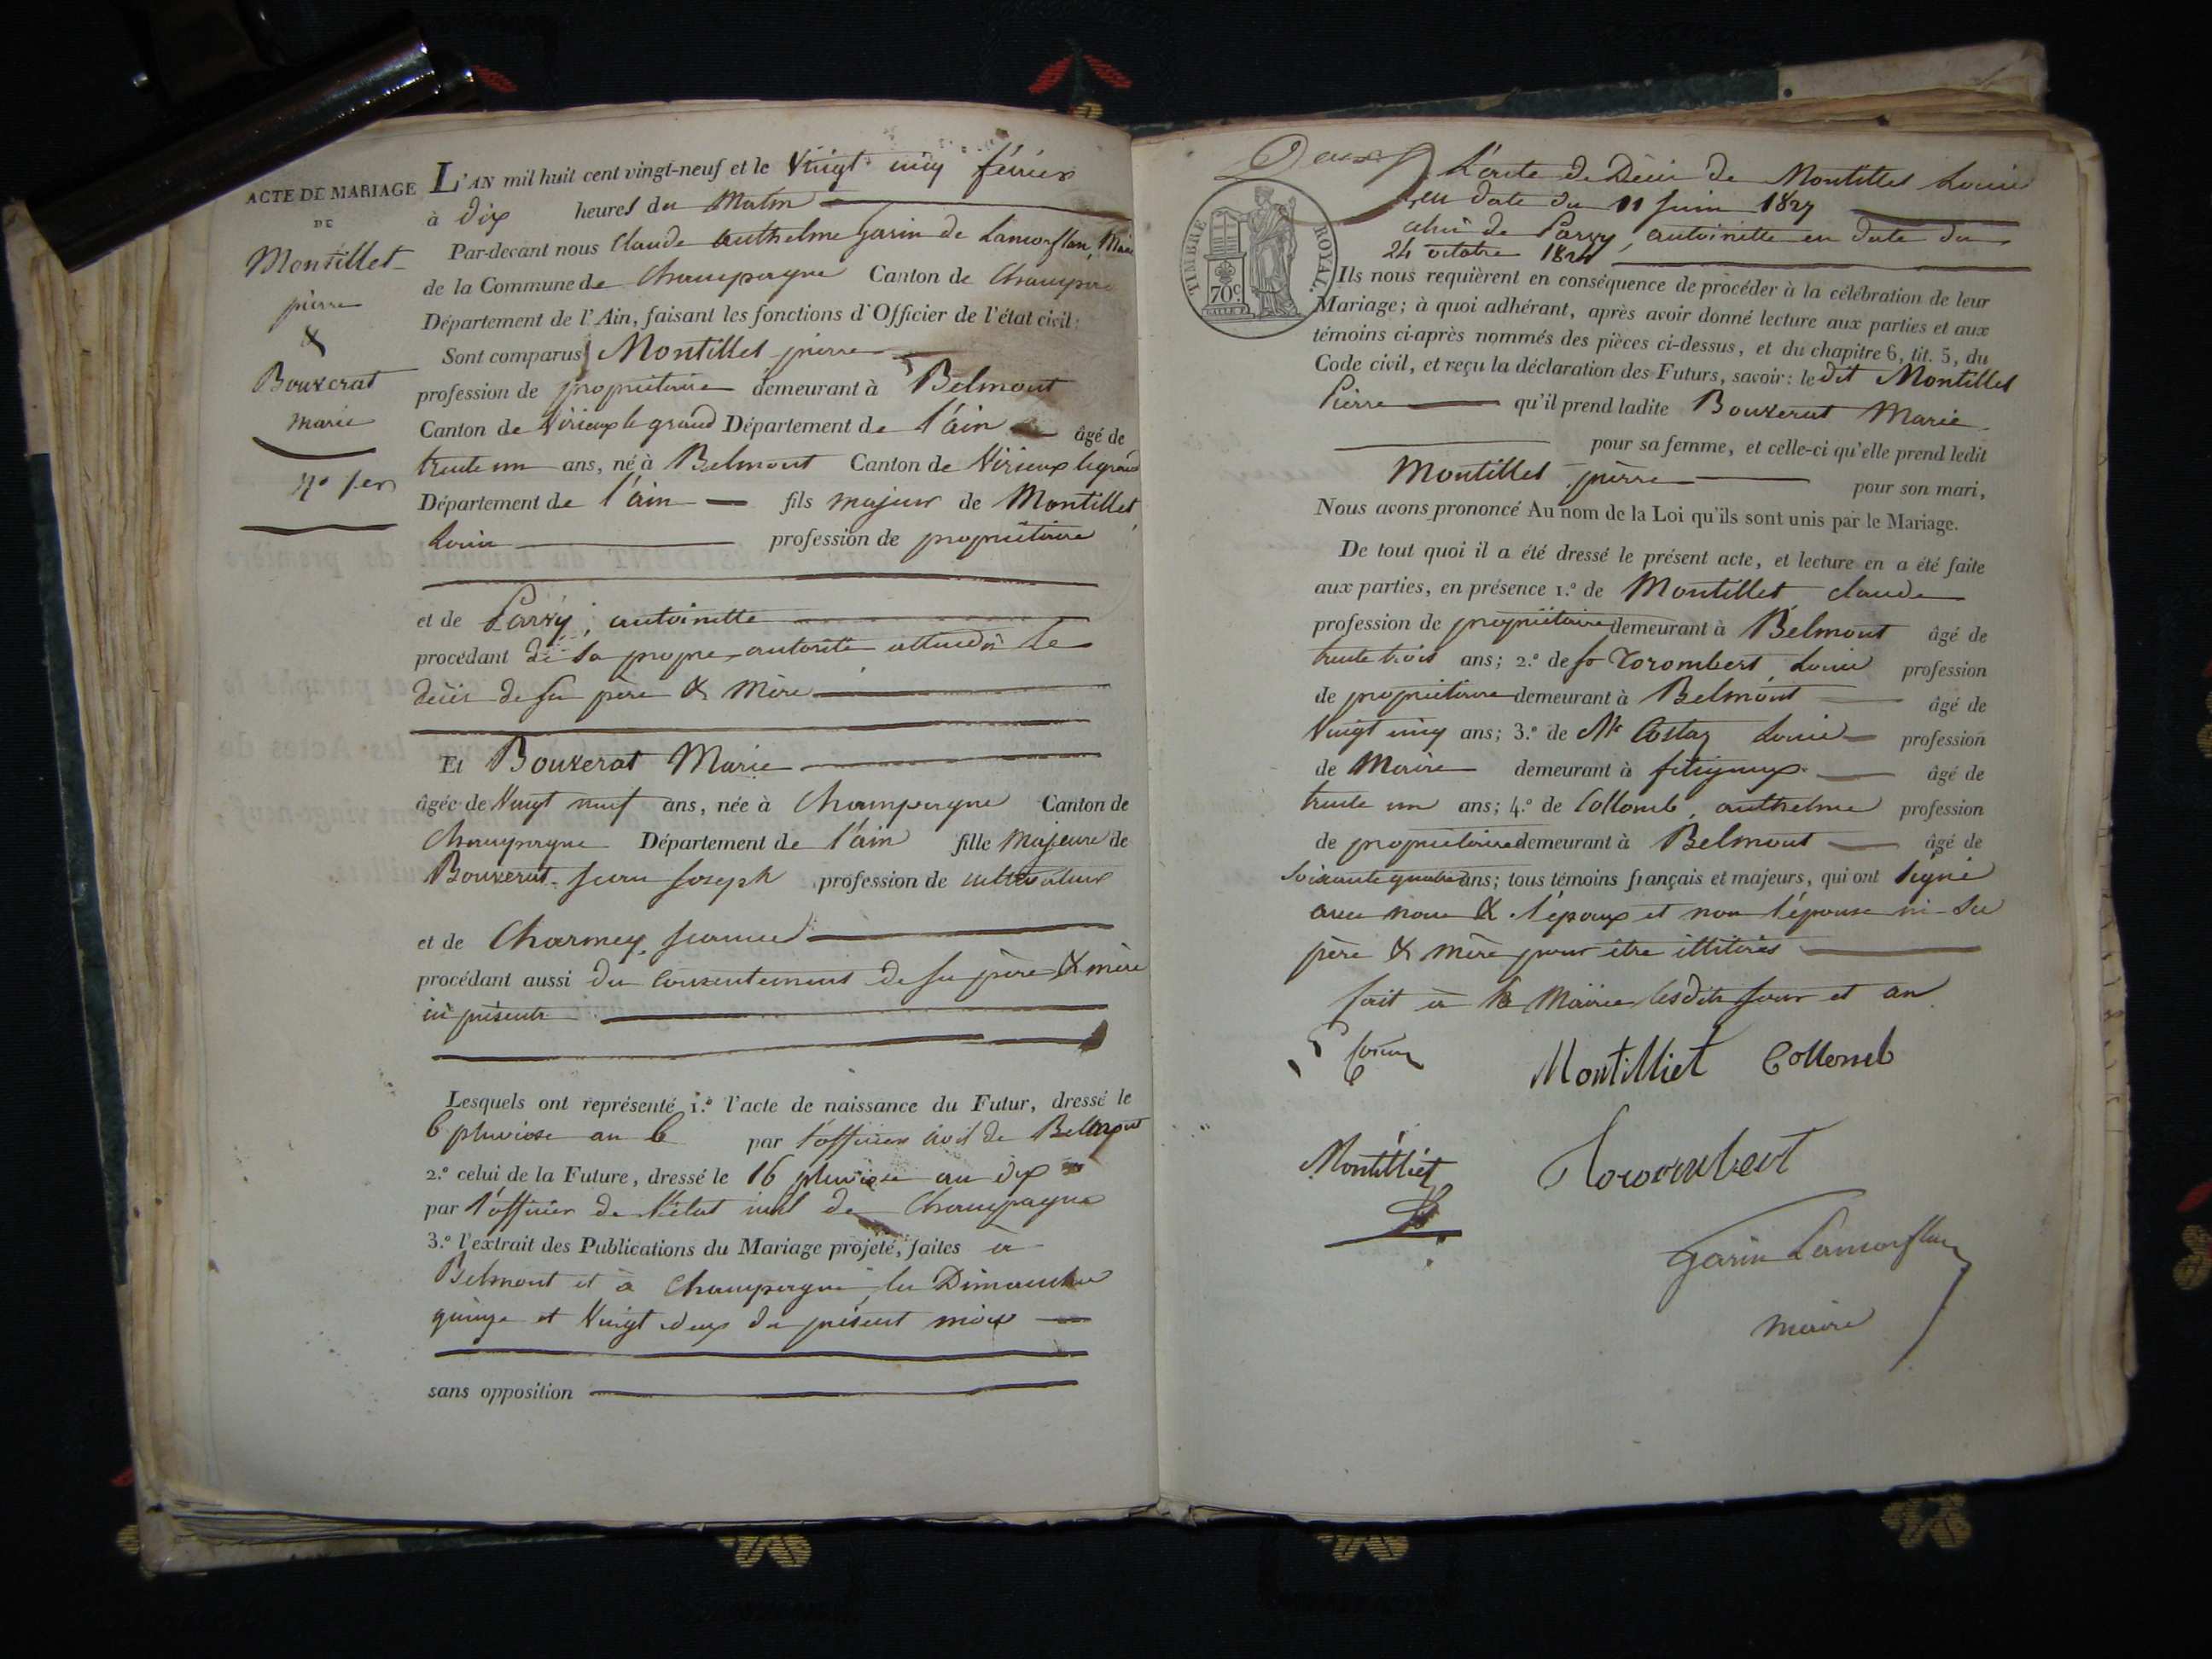 ACTE DE MARIAGE
DE
Montillet
pierre
&
Bouxerat
marie
n° 1er
L'AN mil huit cent vingt-neuf et le Vingt cinq février
à dix heures du Matin
Par-devant nous Claude Anthelme Garin de Lamorflan, Maire
de la Commune de Champagne Canton de Champagne
Département de l'Ain, faisant les fonctions d'Officier de l'état civil:
Sont comparus Montillet pierre
profession de propriétaire demeurant à Belmont
Canton de Virieux le grand Département de l'ain âgé de
trente un ans, né à Belmont Canton de Virieux le grand
Département de l'ain fils majeur de Montillet
Louis profession de propriétaire
et de Parvy, antoinette
procédant de sa propre autorité attendu le
décès de ses père & mère
Et Bouxerat Marie
âgée de Vingt neuf ans, née à Champagne Canton de
Champagne Département de l'ain fille majeure de
Bouxerat Jean Joseph profession de cultivateur
et de Charmey, Jeanne
procédant aussi du consentement de ses père & mère
ici présents
Lesquels ont représenté 1.° l'acte de naissance du Futur, dressé le
6 pluviose an 6 par l'officier civil de Belmont
2.° celui de la Future, dressé le 16 pluviose an dix
par l'officier de l'état civil de Champagne
3.° l'extrait des Publications du Mariage projeté, faites à
Belmont et à Champagne les Dimanches
quinze et Vingt deux du présent mois
sans opposition
TIMBRE ROYAL
70c
L'acte de Décès de Montillet Louis
en date du 11 Juin 1827
celui de Parvy, antoinette en date du
24 octobre
Ils nous requièrent en conséquence de procéder à la célébration de leur
Mariage; à quoi adhérant, après avoir donné lecture aux parties et aux
témoins ci-après nommés des pièces ci-dessus, et du chapitre 6, tit. 5, du
Code civil, et reçu la déclaration des Futurs, savoir: le dit Montillet
Pierre qu'il prend ladite Bouxerat Marie
pour sa femme, et celle-ci qu'elle prend ledit
Montillet pierre pour son mari,
Nous avons prononcé Au nom de la Loi qu'ils sont unis par le Mariage.
De tout quoi il a été dressé le présent acte, et lecture en a été faite
aux parties, en présence 1.° de Montillet claude
profession de propriétaire demeurant à Belmont âgé de
trente trois ans; 2.° de Torombert Louis profession
de propriétaire demeurant à Belmont âgé de
Vingt cinq ans; 3.° de Mr Costaz Louis profession
de Maire demeurant à fitignieux âgé de
trente un ans; 4.° de Collomb, anthelme profession
de propriétaire demeurant à Belmont âgé de
Soixante quatre ans; tous témoins français et majeurs, qui ont signé
avec nous & l'époux et non l'épouse ni ses
père & mère pour être illitérés
fait à la Mairie lesdits jour et an
Montilliet Collomb
Montilliet Torombert
Garin Lamorflan
maire